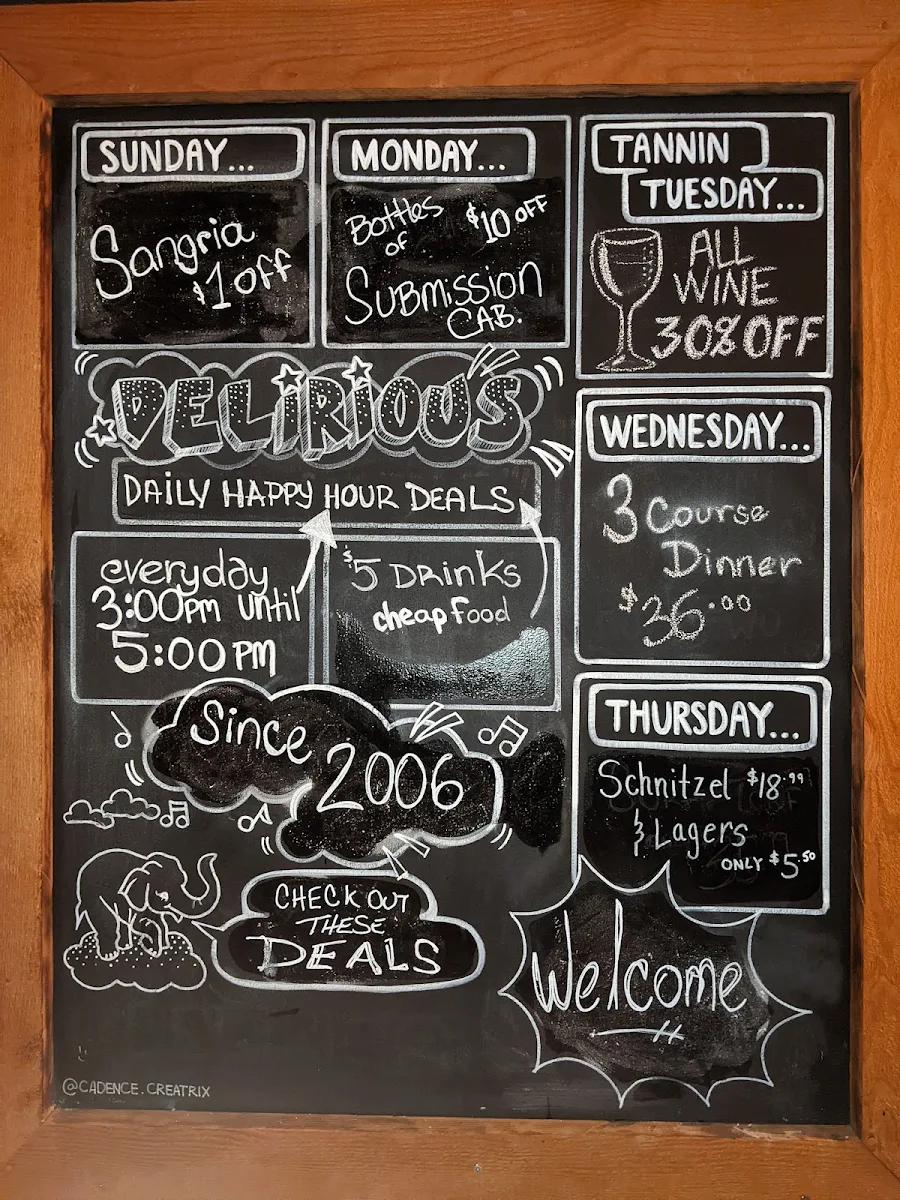 SUNDAY...
Sangria
$1 off
MONDAY...
Bottles $10 OFF
of
Submission
CAB.
TANNIN
TUESDAY...
ALL
WINE
30% OFF
DELIRIOUS
DAILY HAPPY HOUR DEALS
everyday
3:00pm until
5:00 PM
$5 DRINKS
cheap food
WEDNESDAY...
3 Course
Dinner
$36.00
Since
2006
THURSDAY...
Schnitzel $18.99
& Lagers
ONLY $5.50
CHECK OUT
THESE
DEALS
Welcome
@CADENCE.CREATRIX